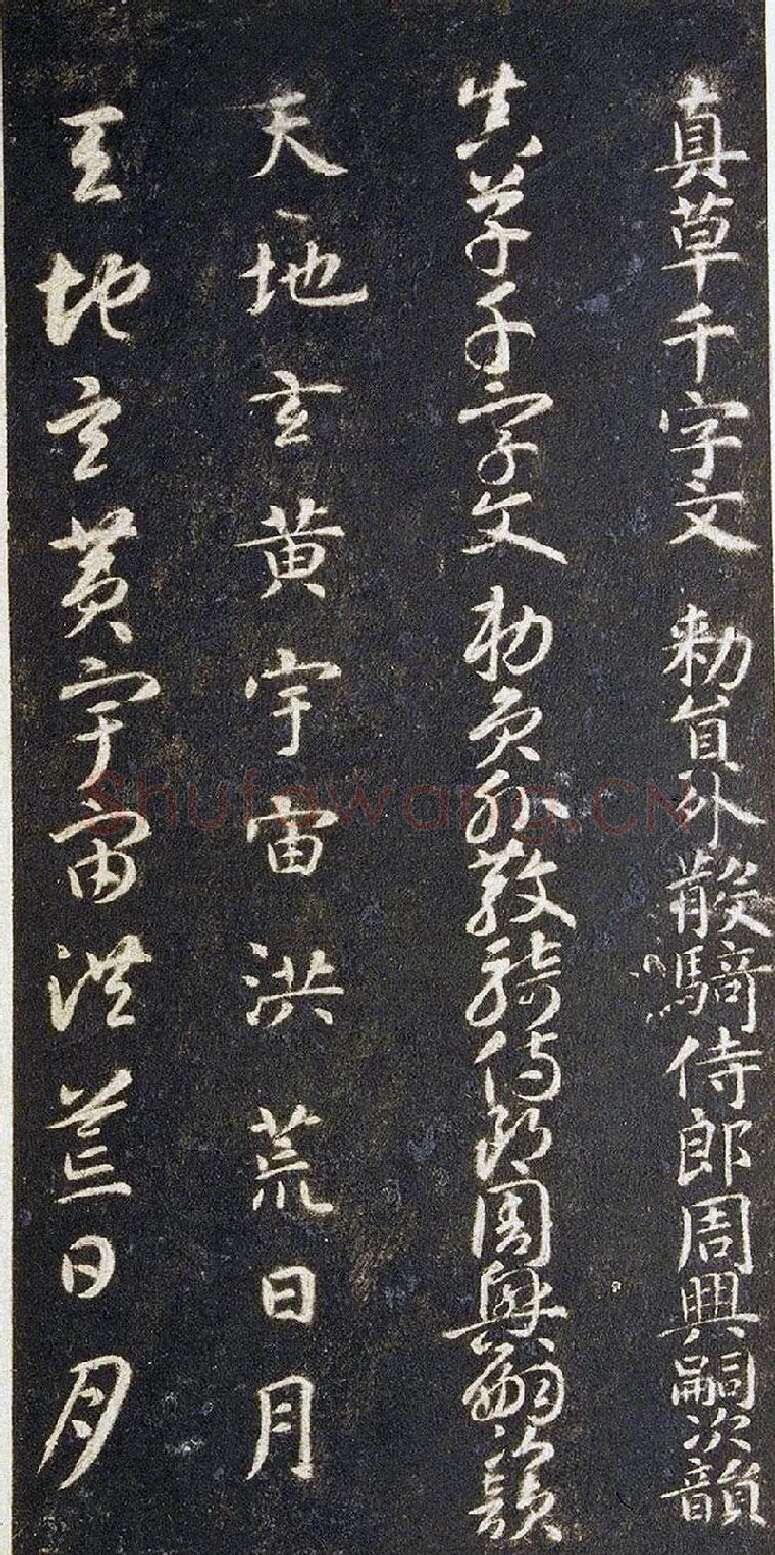 真草千字文 勅員外散騎侍郎周興嗣次韻
真草千字文 勅員外散騎侍郎周興嗣次韻
天地玄黄宇宙洪荒日月
天地玄黄宇宙洪荒日月
Shufawang.CN